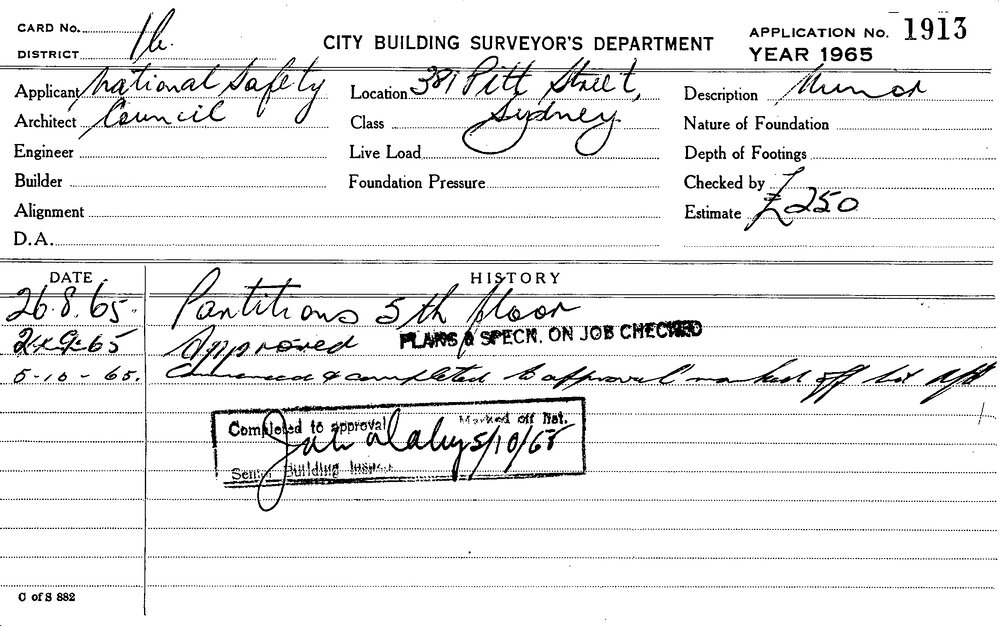 CARD No.
DISTRICT 1b.
CITY BUILDING SURVEYOR'S DEPARTMENT
APPLICATION No. 1913
YEAR 1965
Applicant National Safety
Architect Council
Engineer
Builder
Alignment
D.A.
Location 381 Pitt Street,
Class Sydney
Live Load
Foundation Pressure
Description Minor
Nature of Foundation
Depth of Footings
Checked by
Estimate £250
DATE HISTORY
26.8.65. Partitions 5th floor
9.65 Approved PLANS & SPECN. ON JOB CHECKED
5-10-65. Commenced & completed to approval marked off list
Completed to approval Marked off list.
5/10/65
Senior Building Inspec
C of S 882